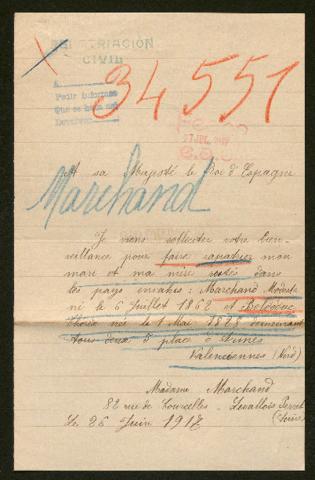 REPATRIACIÓN
CIVIL
34551
A
Pedir informes
Que se haga
27 JUL. 1917
A sa Majesté le Roi d'Espagne
Marchand
Je viens solliciter votre bien-
veillance pour faire rapatrier mon
mari et ma mère restés dans
les pays envahis : Marchand Modeste
né le 6 Juillet 1862 et
née le 1 Mai 1828 demeurant
tous deux 5 place
Valenciennes (Nord)
Madame Marchand
82 rue de Courcelles Levallois Perret
(Seine)
Le 26 Juin 1917